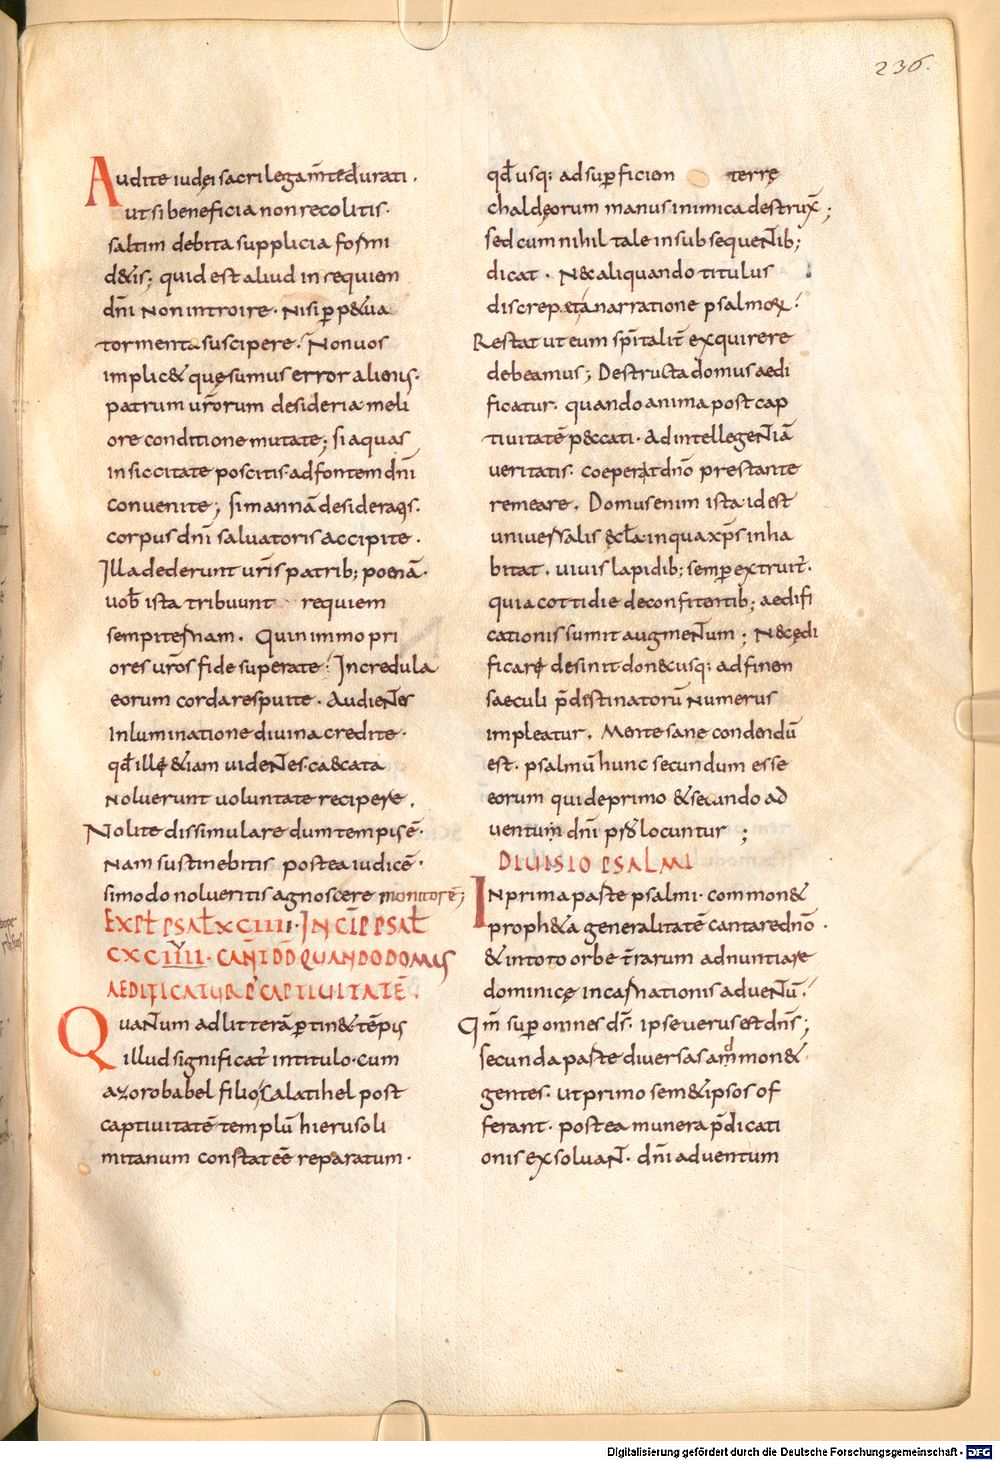 236.
Audite iudęi sacrilega m̅te durati.
ut si beneficia non recolitis.
saltim debita supplicia formi
d&is; quid est aliud in requiem
dn̅i Non introire. Nisi p̲ p&ua
tormenta suscipere. Non uos
implic& quęsumus error alienus.
patrum ur̅orum desideria meli
ore conditione mutate; si aquas
in siccitate poscitis. ad fontem dn̅i
conuenite; si mannā desideratis.
corpus dn̅i saluatoris accipite.
Illa dederunt ur̅is patrib; poenā.
uob̅ ista tribuunt requiem
sempiternam. Quin immo pri
ores ur̅os fide superate. Incredula
eorum corda respuite. Audientes
Inluminatione diuina credite.
qd̅ illę &iam uidentes. caecata
Noluerunt uoluntate recipere.
Nolite dissimulare dum tempus ē.
Nam sustinebitis postea iudicē.
si modo nolueritis agnoscere monitorē;
EXPL̅ PSAL̅ XCIIII. INCIP̅ PSAL̅
CXCIIIII. CAN̅T D̅D QUANDO DOMUS
AEDIFICATUR P̅ CAPTIUITATĒ.
Quantum ad litterā p̲tin& tēpus
illud significat̅ in titulo. cum
a zorobabel filio salatihel post
captiuitatē templū hierusoli
mitanum constat eē reparatum.
qd̅ usq; ad sup̲ficien terrę
chaldęorum manus inimica destrux̅;
sed cum nihil tale in subsequentib;
dicat. N& aliquando titulus
discrep& a narratione psalmorum.
Restat ut eum sp̅italit̅ exquirere
debeamus; Destructa domus aedi
ficatur. quando anima post cap
tiuitatē peccati. ad intellegentiā
ueritatis. coeperat dn̅o prestante
remeare. Domus enim ista. id est
uniuersalis &cl̅a in qua xp̅s inha
bitat. uiuis lapidib; semp̲ extruit̅.
quia cottidie de confitentib; aedifi
cationis sumit augmentum; N& ędi
ficare desinit donec usq; ad finem
saeculi p̅destinatorū Numerus
impleatur. Mente sane condendū
est. psalmū hunc secundum esse
eorum qui de primo & secundo ad
uentum dn̅i p̅s locuntur;
DIUISIO PSALMI
In prima parte psalmi. common&
proph&a generalitatē cantare dn̅o.
& in toto orbe t̅rarum adnuntiare
dominicę incarnationis aduentū.
Qm̅ sup̲ omnes ds̅. ipse uerus est dn̅s;
secunda parte diuersas ammon&
gentes. ut primo sem&ipsos of
ferant. postea munera p̅dicati
onis exsoluant. dn̅i aduentum
Digitalisierung gefördert durch die Deutsche Forschungsgemeinschaft - DFG